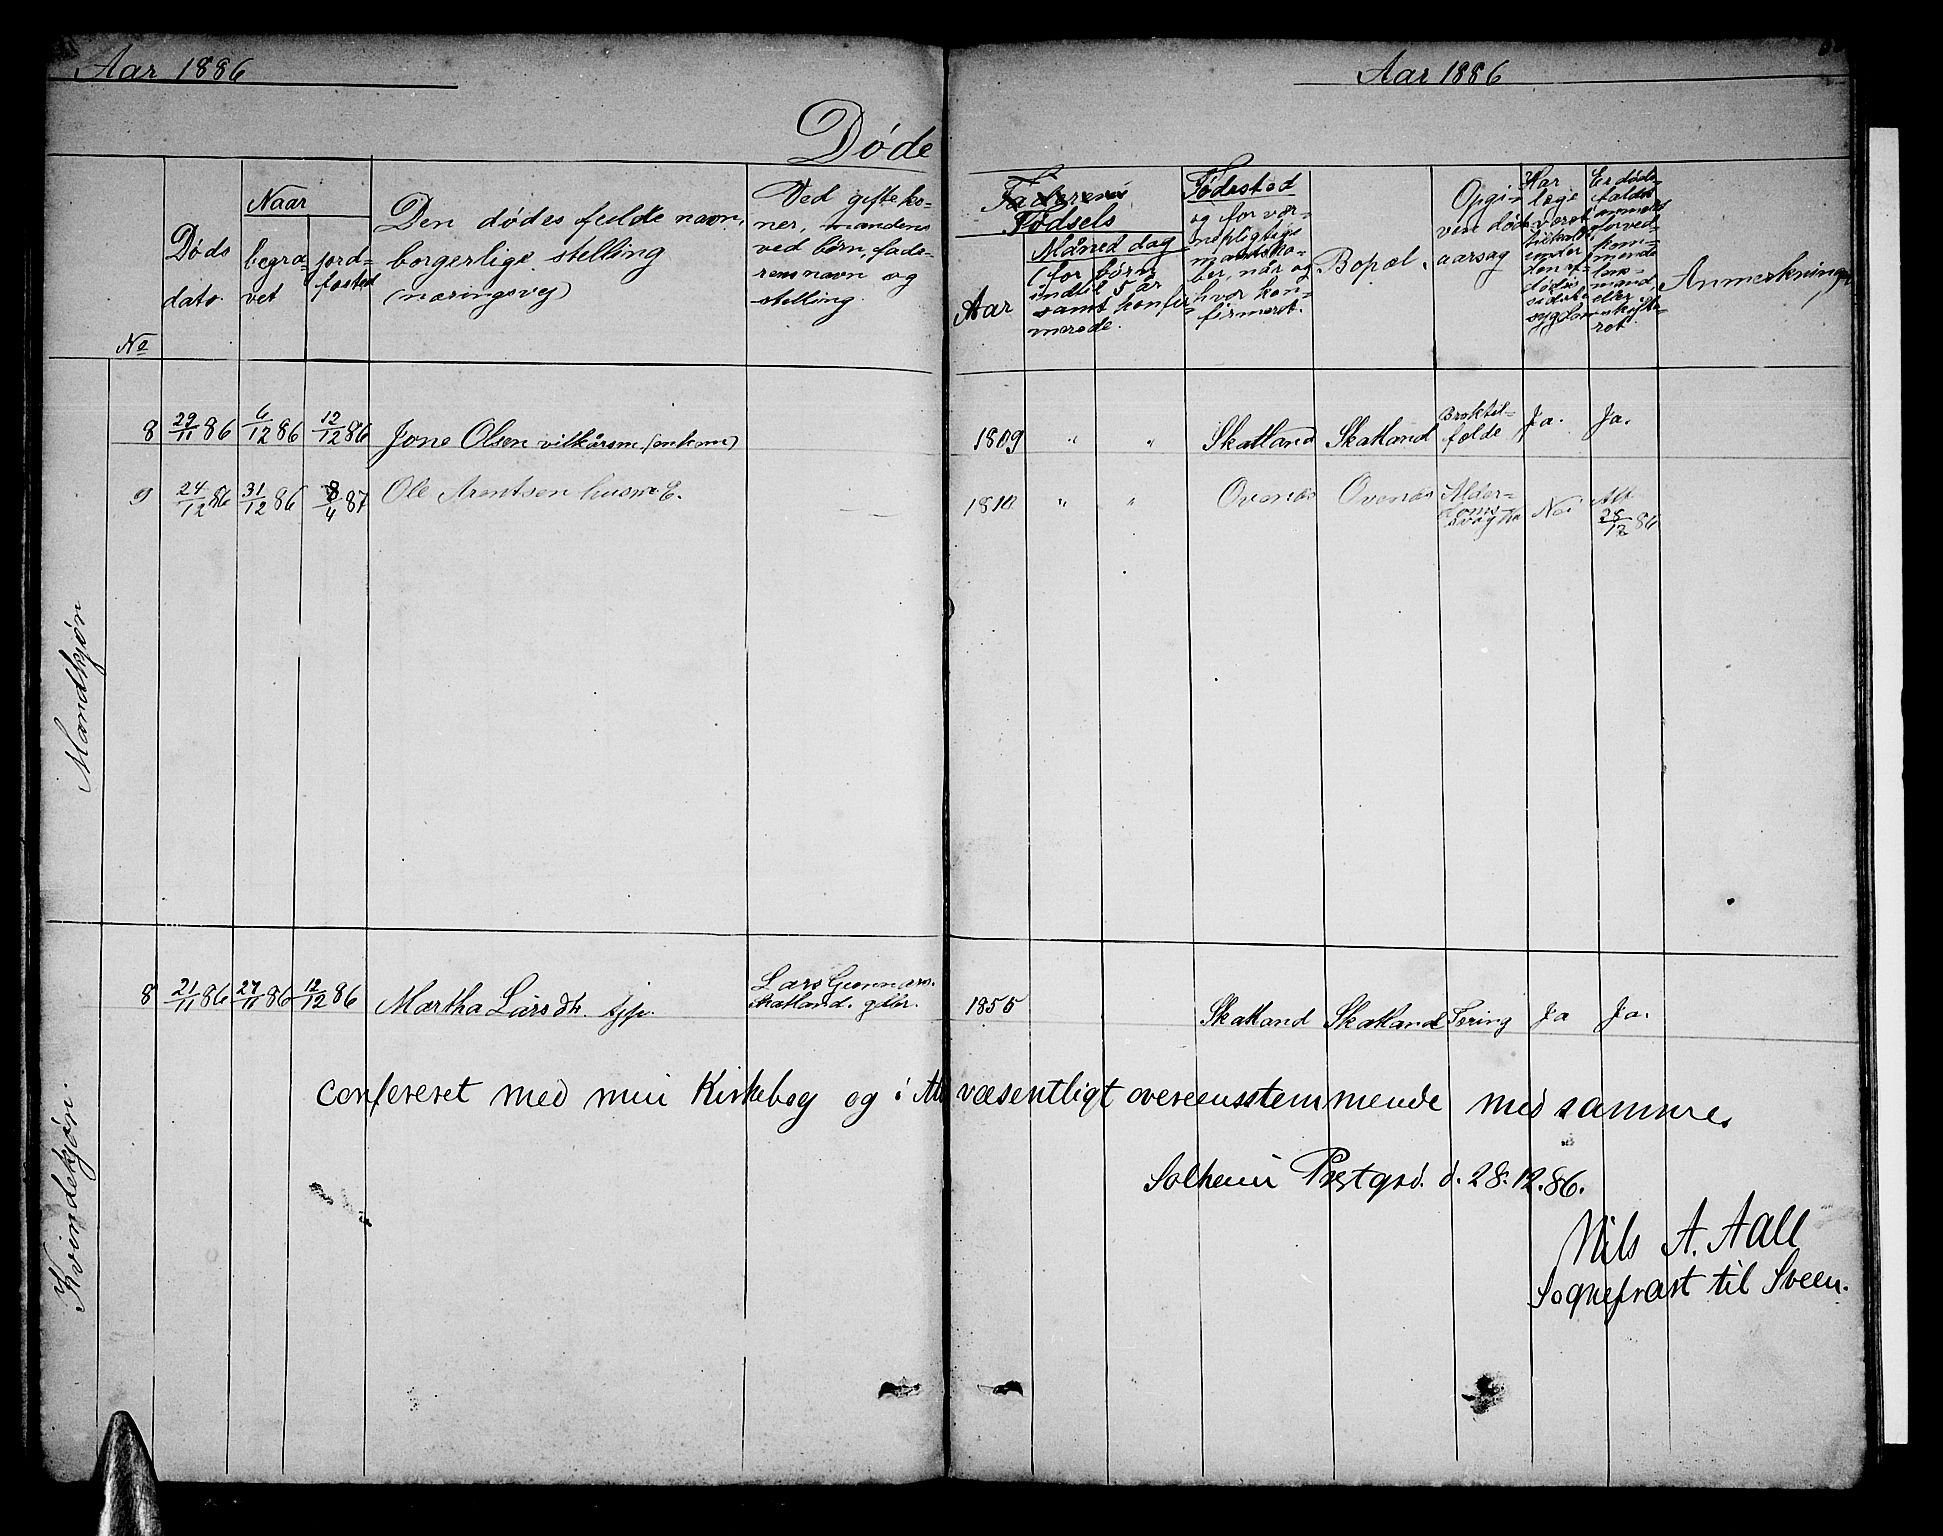 Aar 1886
Aar 1886
Døde
No
Døds
dato
Naar
begra-
vet
jord-
fæsted
Den dødes fulde navn,
borgerlige stelling
(næringsvej)
Ved gifte ko-
ner, mandens
ved børn, fade-
rens navn og
stelling.
Faderens
Fødsels
Aar
Måned dag
(for børn
indtil 5 år
samt konfir-
merede.
Fødested
og for vær-
nepligtige
mandska-
ber, når og
hvor kon-
firmeret.
Bopæl.
Opgi-
ven døds-
aarsag
Har
læge
været
tilkaldt
under
den af-
dødes
sidste
sygdom
Er døds-
faldet
anmeldt
for ved-
kom-
mende
lens-
mand,
eller
skifte-
ret.
Anmerkninger
Mandkjøn
8 29/11 86 6/12 86 12/12 86 Jone Olsen vilkårsm. (enkem) 1809 " " Skatland Skatland Broktil-
fælde Ja. Ja.
9 24/12 86 31/12 86 8/4 87 Ole Arentsen husm E. — 1810 " " Ovenås Ovenås Alder-
doms-
svaghed Nei Att
28/12 86
Kvindekjøn.
8 21/11 86 27/11 86 12/12 86 Martha Larsdtr. Lars Gunnars.
Skatland. gbr. 1855 Skatland Skatland Tæring Ja Ja.
confereret med min Kirkebog og i Alt væsentligt overeensstemmende med samme.
Solheim Prestgrd. d. 28.12.86.
Nils A. Aall
Sognepræst til Sveen.